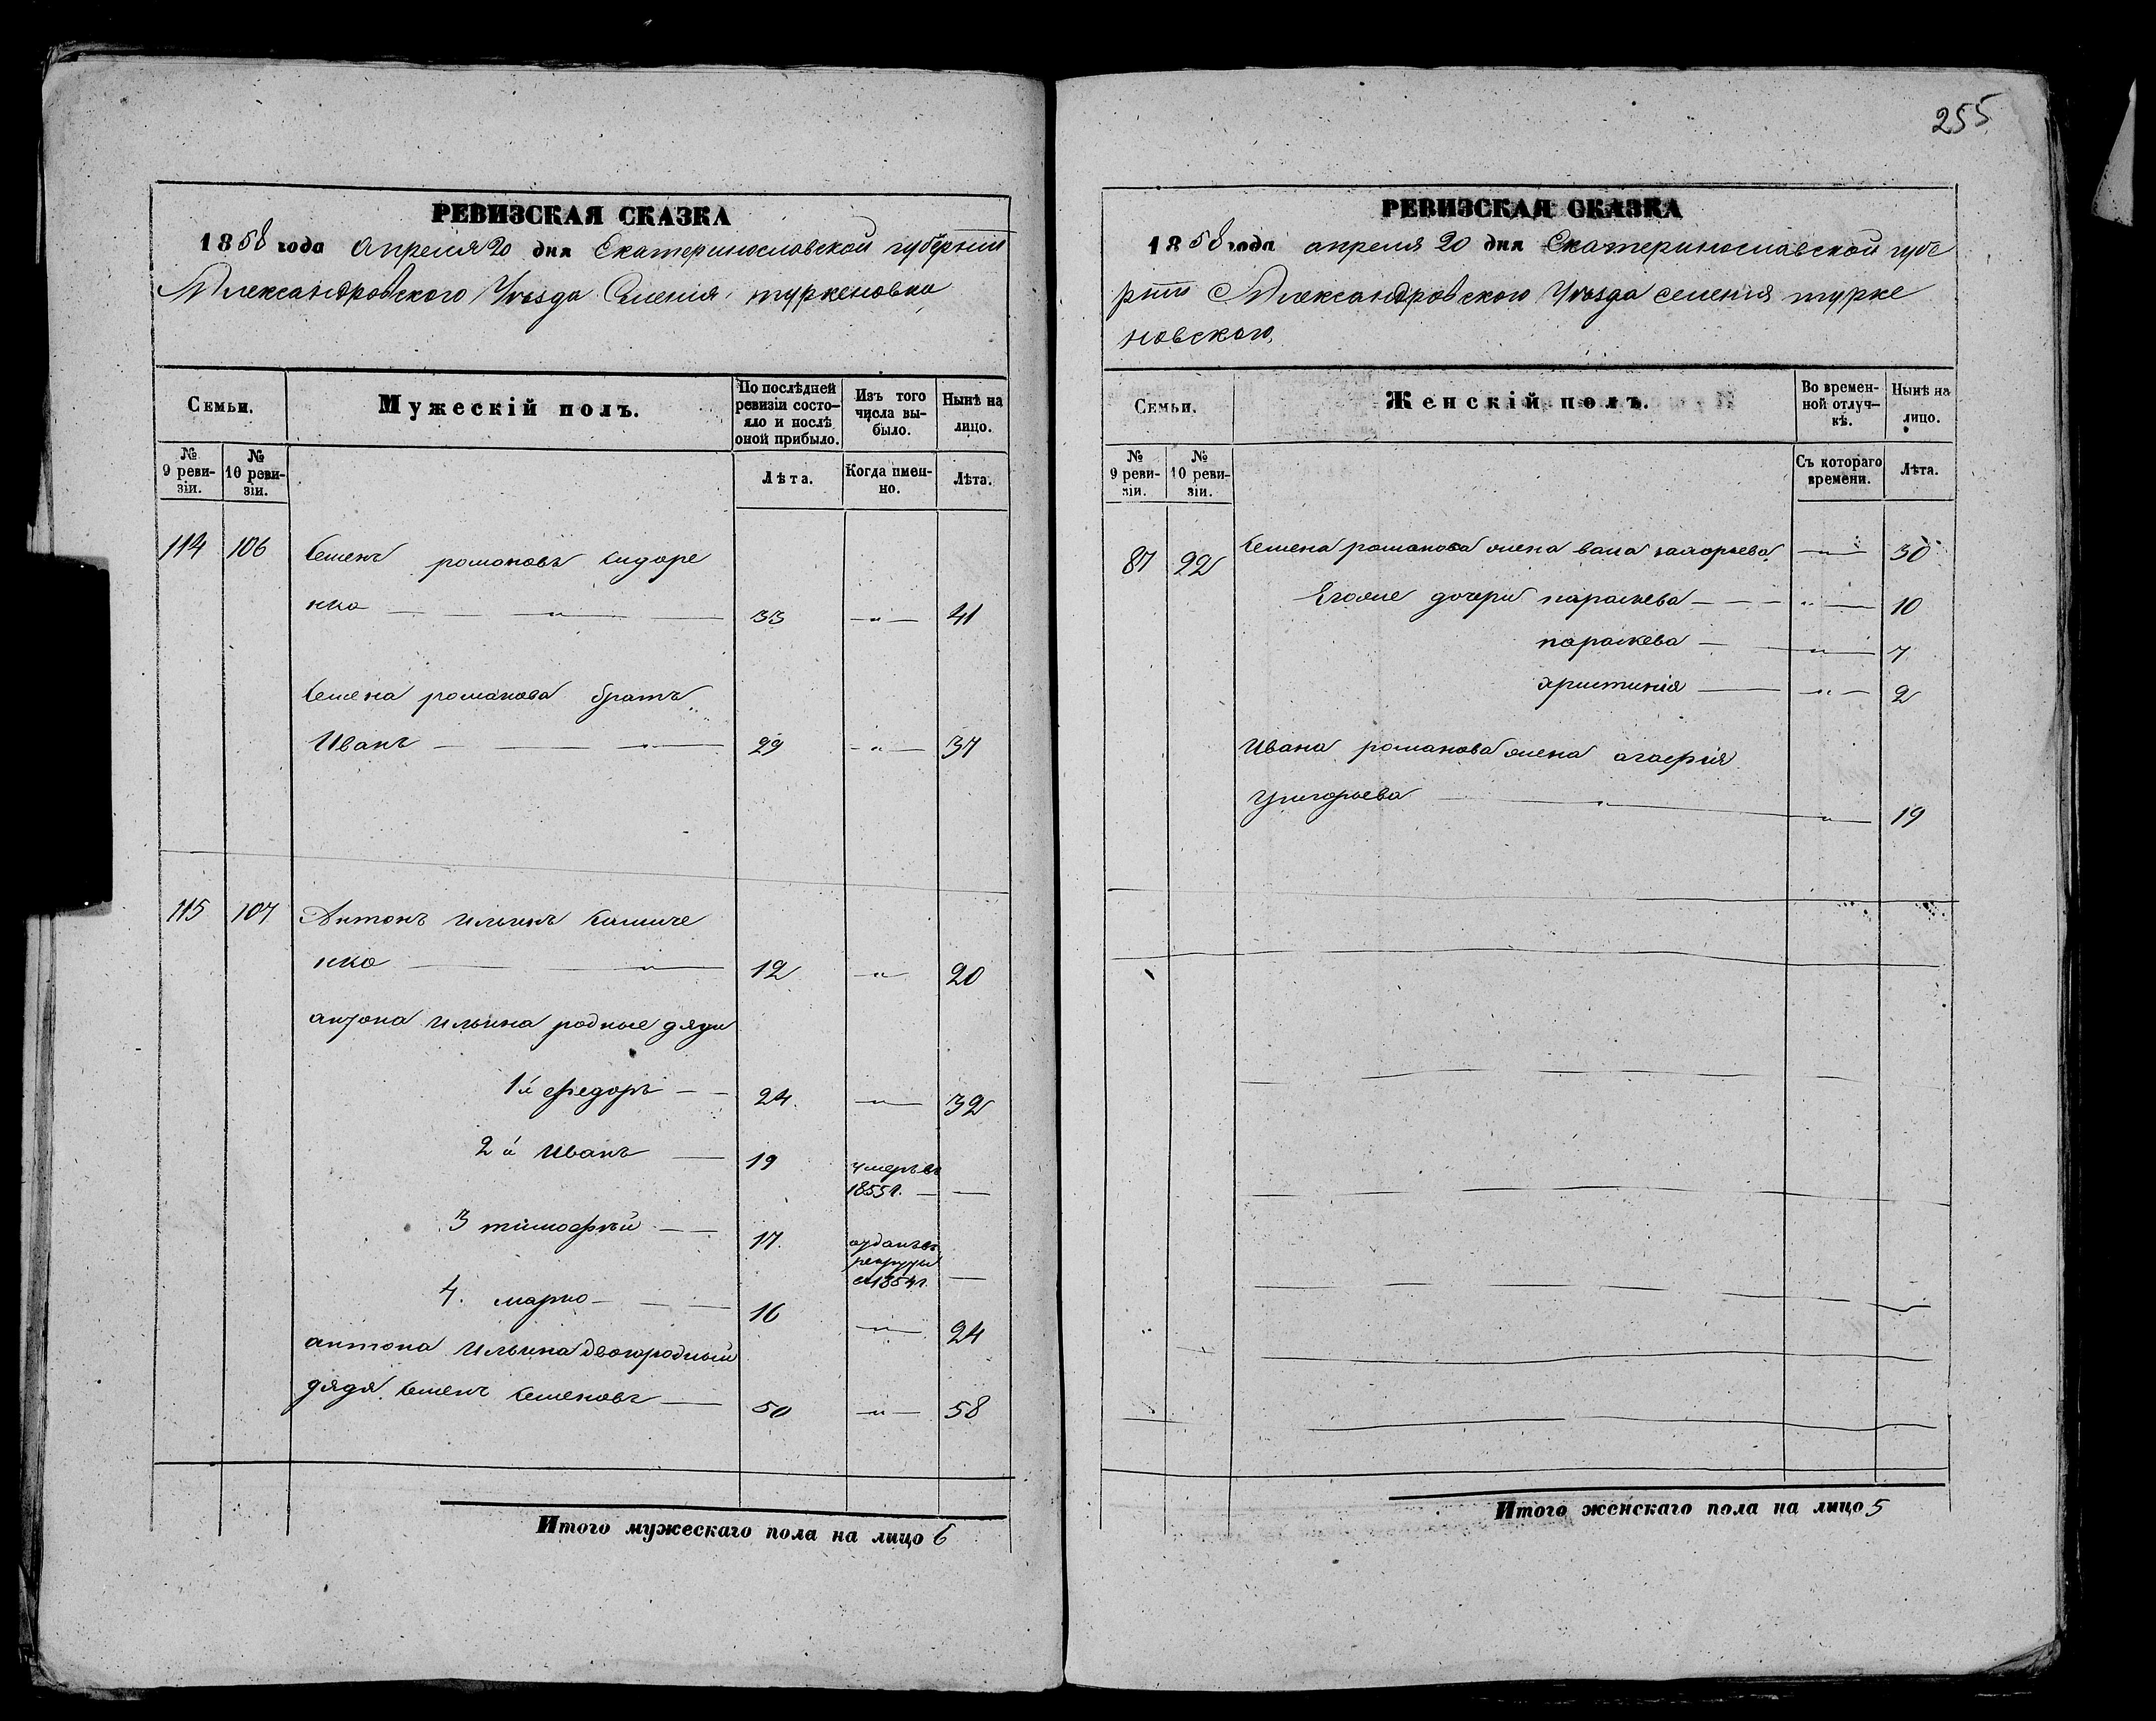 255
РЕВИЗСКАЯ СКАЗКА
1858 года Апреля 20 дня Екатеринославской губерніи
Александровского Уѣзда Селенія туркеновка
Семьи.
Мужескій полъ.
По послѣдней ревизіи состояло и послѣ оной прибыло.
Изъ того числа выбыло.
Нынѣ на лицо.
№ 9 ревизіи.
№ 10 ревизіи.
Лѣта.
Когда имен-
но.
Лѣта.
114 106 Семенъ романовъ Сидоре
нко — " — 33 — " — 41
Семена романова братъ
Иванъ — " — 29 — " — 37
115 107 Антонъ Ильинъ
нко — " — 12 " 20
антона Ильина родные дяди
1й Федоръ — 24. — " — 32
2й Иванъ — 19 умеръ въ
1855 г. — —
3 тимофѣй — 17. отданъ въ
рекруты
въ 1854 г. —
4. марко — 16 — " — 24
антона Ильина двоюродный
дядя Семенъ Семеновъ — 50 — " — 58
Итого мужескаго пола на лицо 6
РЕВИЗСКАЯ СКАЗКА
1858 года апреля 20 дня Екатеринославской губе
рніи Александровского Уѣзда селенія турке
новского
Семьи.
Женскій полъ.
Во времен-
ной отлуч-
кѣ.
Нынѣ на
лицо.
№ 9 ревизіи.
№ 10 ревизіи.
Съ котораго
времени.
Лѣта.
87 92 Семена романова жена — " — 30
Его же дочери параскева — " — 10
параскева — " — 7
христинія — " — 2
Ивана романова жена агафія
григорьева — " — " — 19
Итого женскаго пола на лицо 5